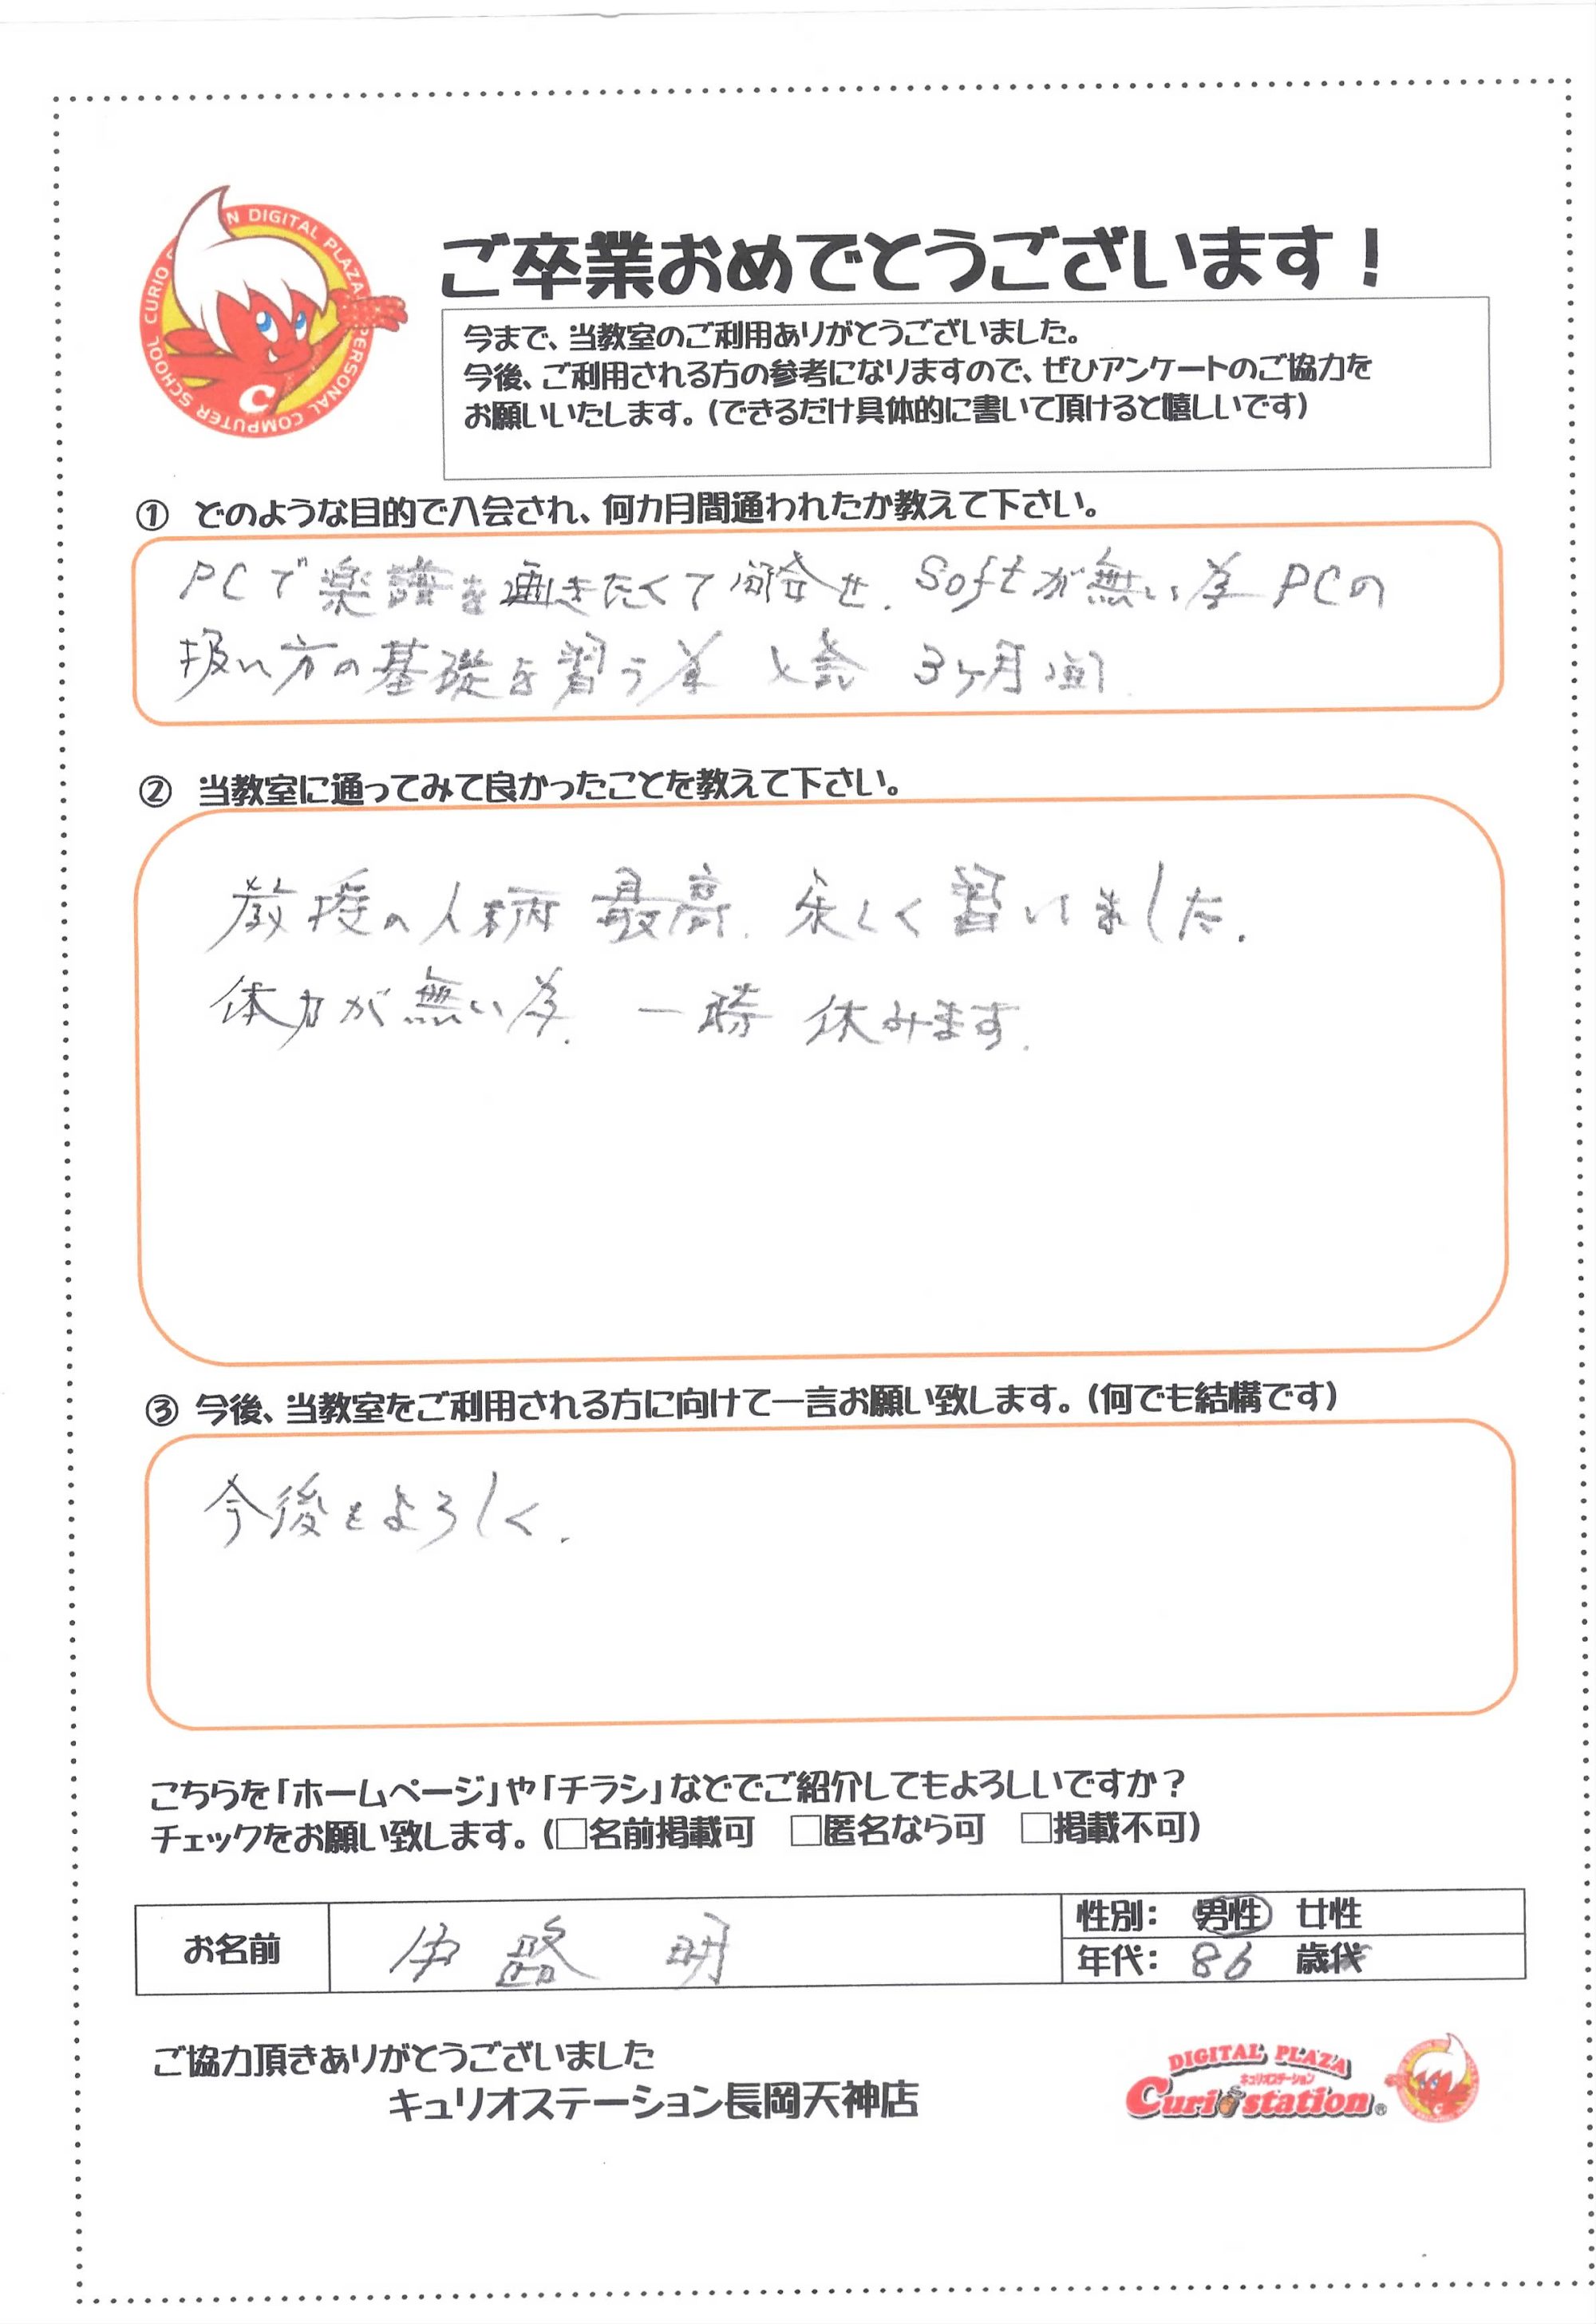 CURIO DIGITAL PLAZA PERSONAL COMPUTER SCHOOL
ご卒業おめでとうございます！
今まで、当教室のご利用ありがとうございました。
今後、ご利用される方の参考になりますので、ぜひアンケートのご協力を
お願いいたします。（できるだけ具体的に書いて頂けると嬉しいです）
① どのような目的で入会され、何カ月間通われたか教えて下さい。
PCで楽譜を画きたくて問合せ. Softが無い為PCの
扱い方の基礎を習う為 入会 3ヶ月間.
② 当教室に通ってみて良かったことを教えて下さい。
教授の人柄 最高. 楽しく習いました.
体力が無い為. 一時 休みます.
③ 今後、当教室をご利用される方に向けて一言お願い致します。（何でも結構です）
今後もよろしく.
こちらを「ホームページ」や「チラシ」などでご紹介してもよろしいですか？
チェックをお願い致します。（□名前掲載可 □匿名なら可 □掲載不可）
お名前 明 性別： 男性 女性
年代： 86 歳代
ご協力頂きありがとうございました
キュリオステーション長岡天神店
DIGITAL PLAZA
キュリオステーション
Curio station®